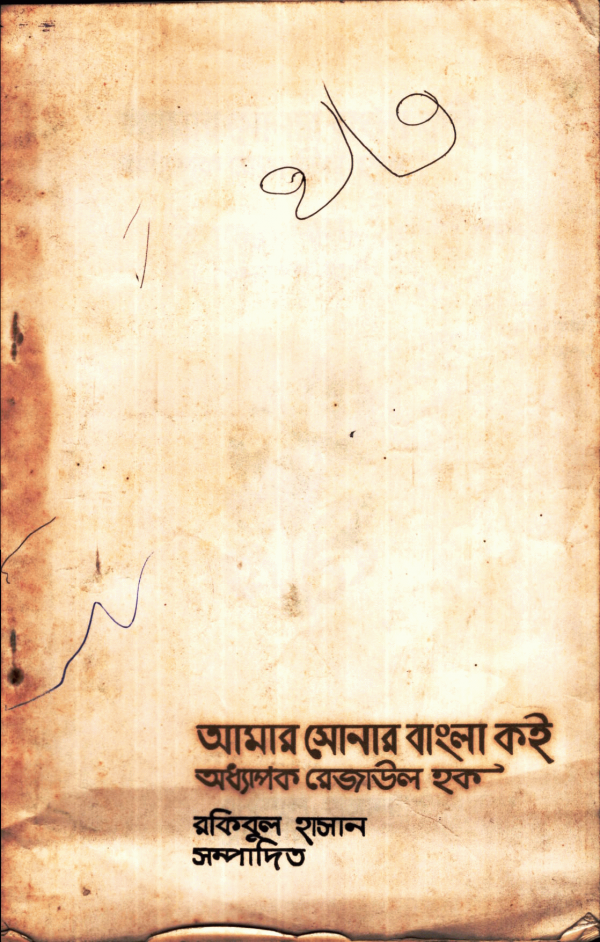 আমার সোনার বাংলা কই
অধ্যাপক রেজাউল হক
রকিবুল হাসান
সম্পাদিত